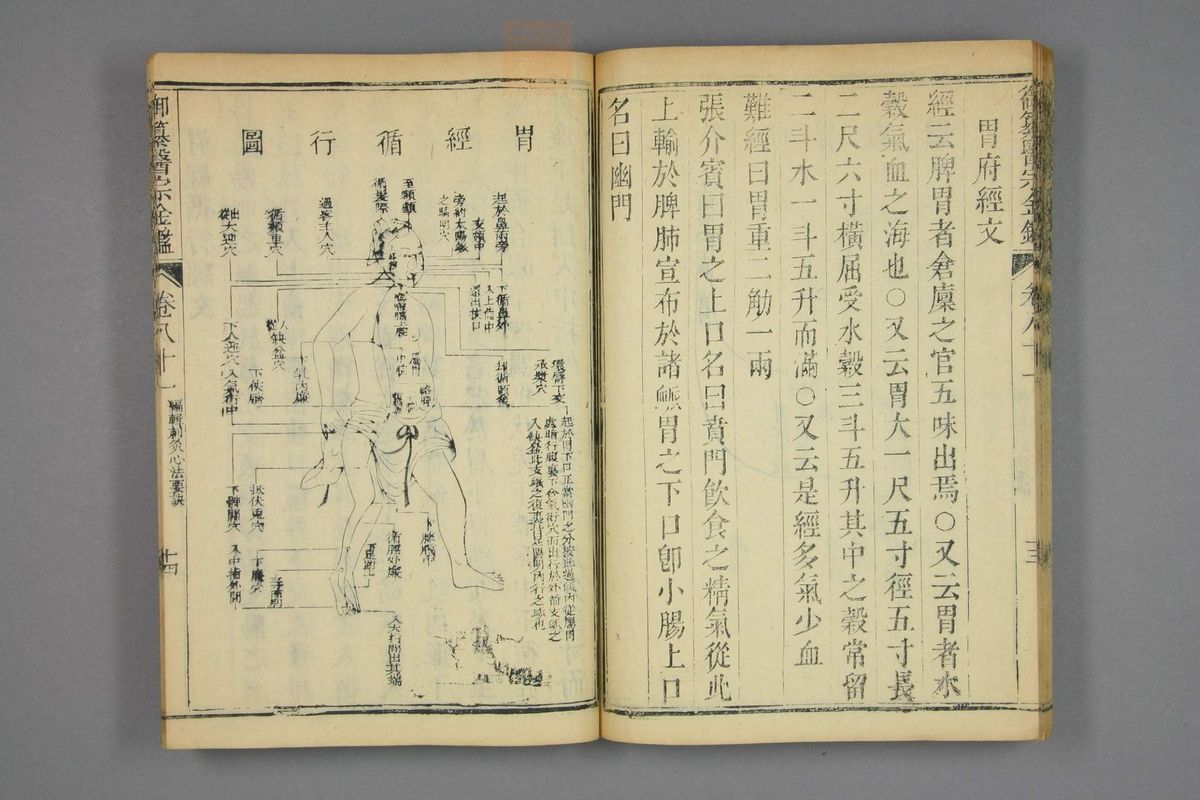 御纂醫宗金鑑
卷八十一
胃府經文
經云脾胃者倉廩之官五味出焉○又云胃者水
穀氣血之海也○又云胃大一尺五寸徑五寸長
二尺六寸橫屈受水穀三斗五升其中之穀常留
二斗水一斗五升而滿○又云是經多氣少血
難經曰胃重二觔一兩
張介賓曰胃之上口名曰賁門飲食之精氣從此
上輸於脾肺宣布於諸䘑胃之下口卽小腸上口
名曰幽門
胃經循行圖
起於鼻兩旁
交頞中
旁約太陽䘑
之睛明穴
至額顱
循髮際
過客主人穴
循頰車穴
出大迎穴
下循鼻外
入上齒中
還出挾口
環脣下交
承漿穴
却循頤後
從缺盆穴
下乳內廉
下俠臍
下人迎穴
入氣街中
起於胃下口正當幽門之分按此道䘑內從膈胃
抵伏兔穴
下髀關穴
下廉穴
入中指外間
下膝臏中
循脛外廉
下足跗
入大指間出其端
御纂醫宗金鑑
卷八十一
編輯刺灸心法要訣
十四